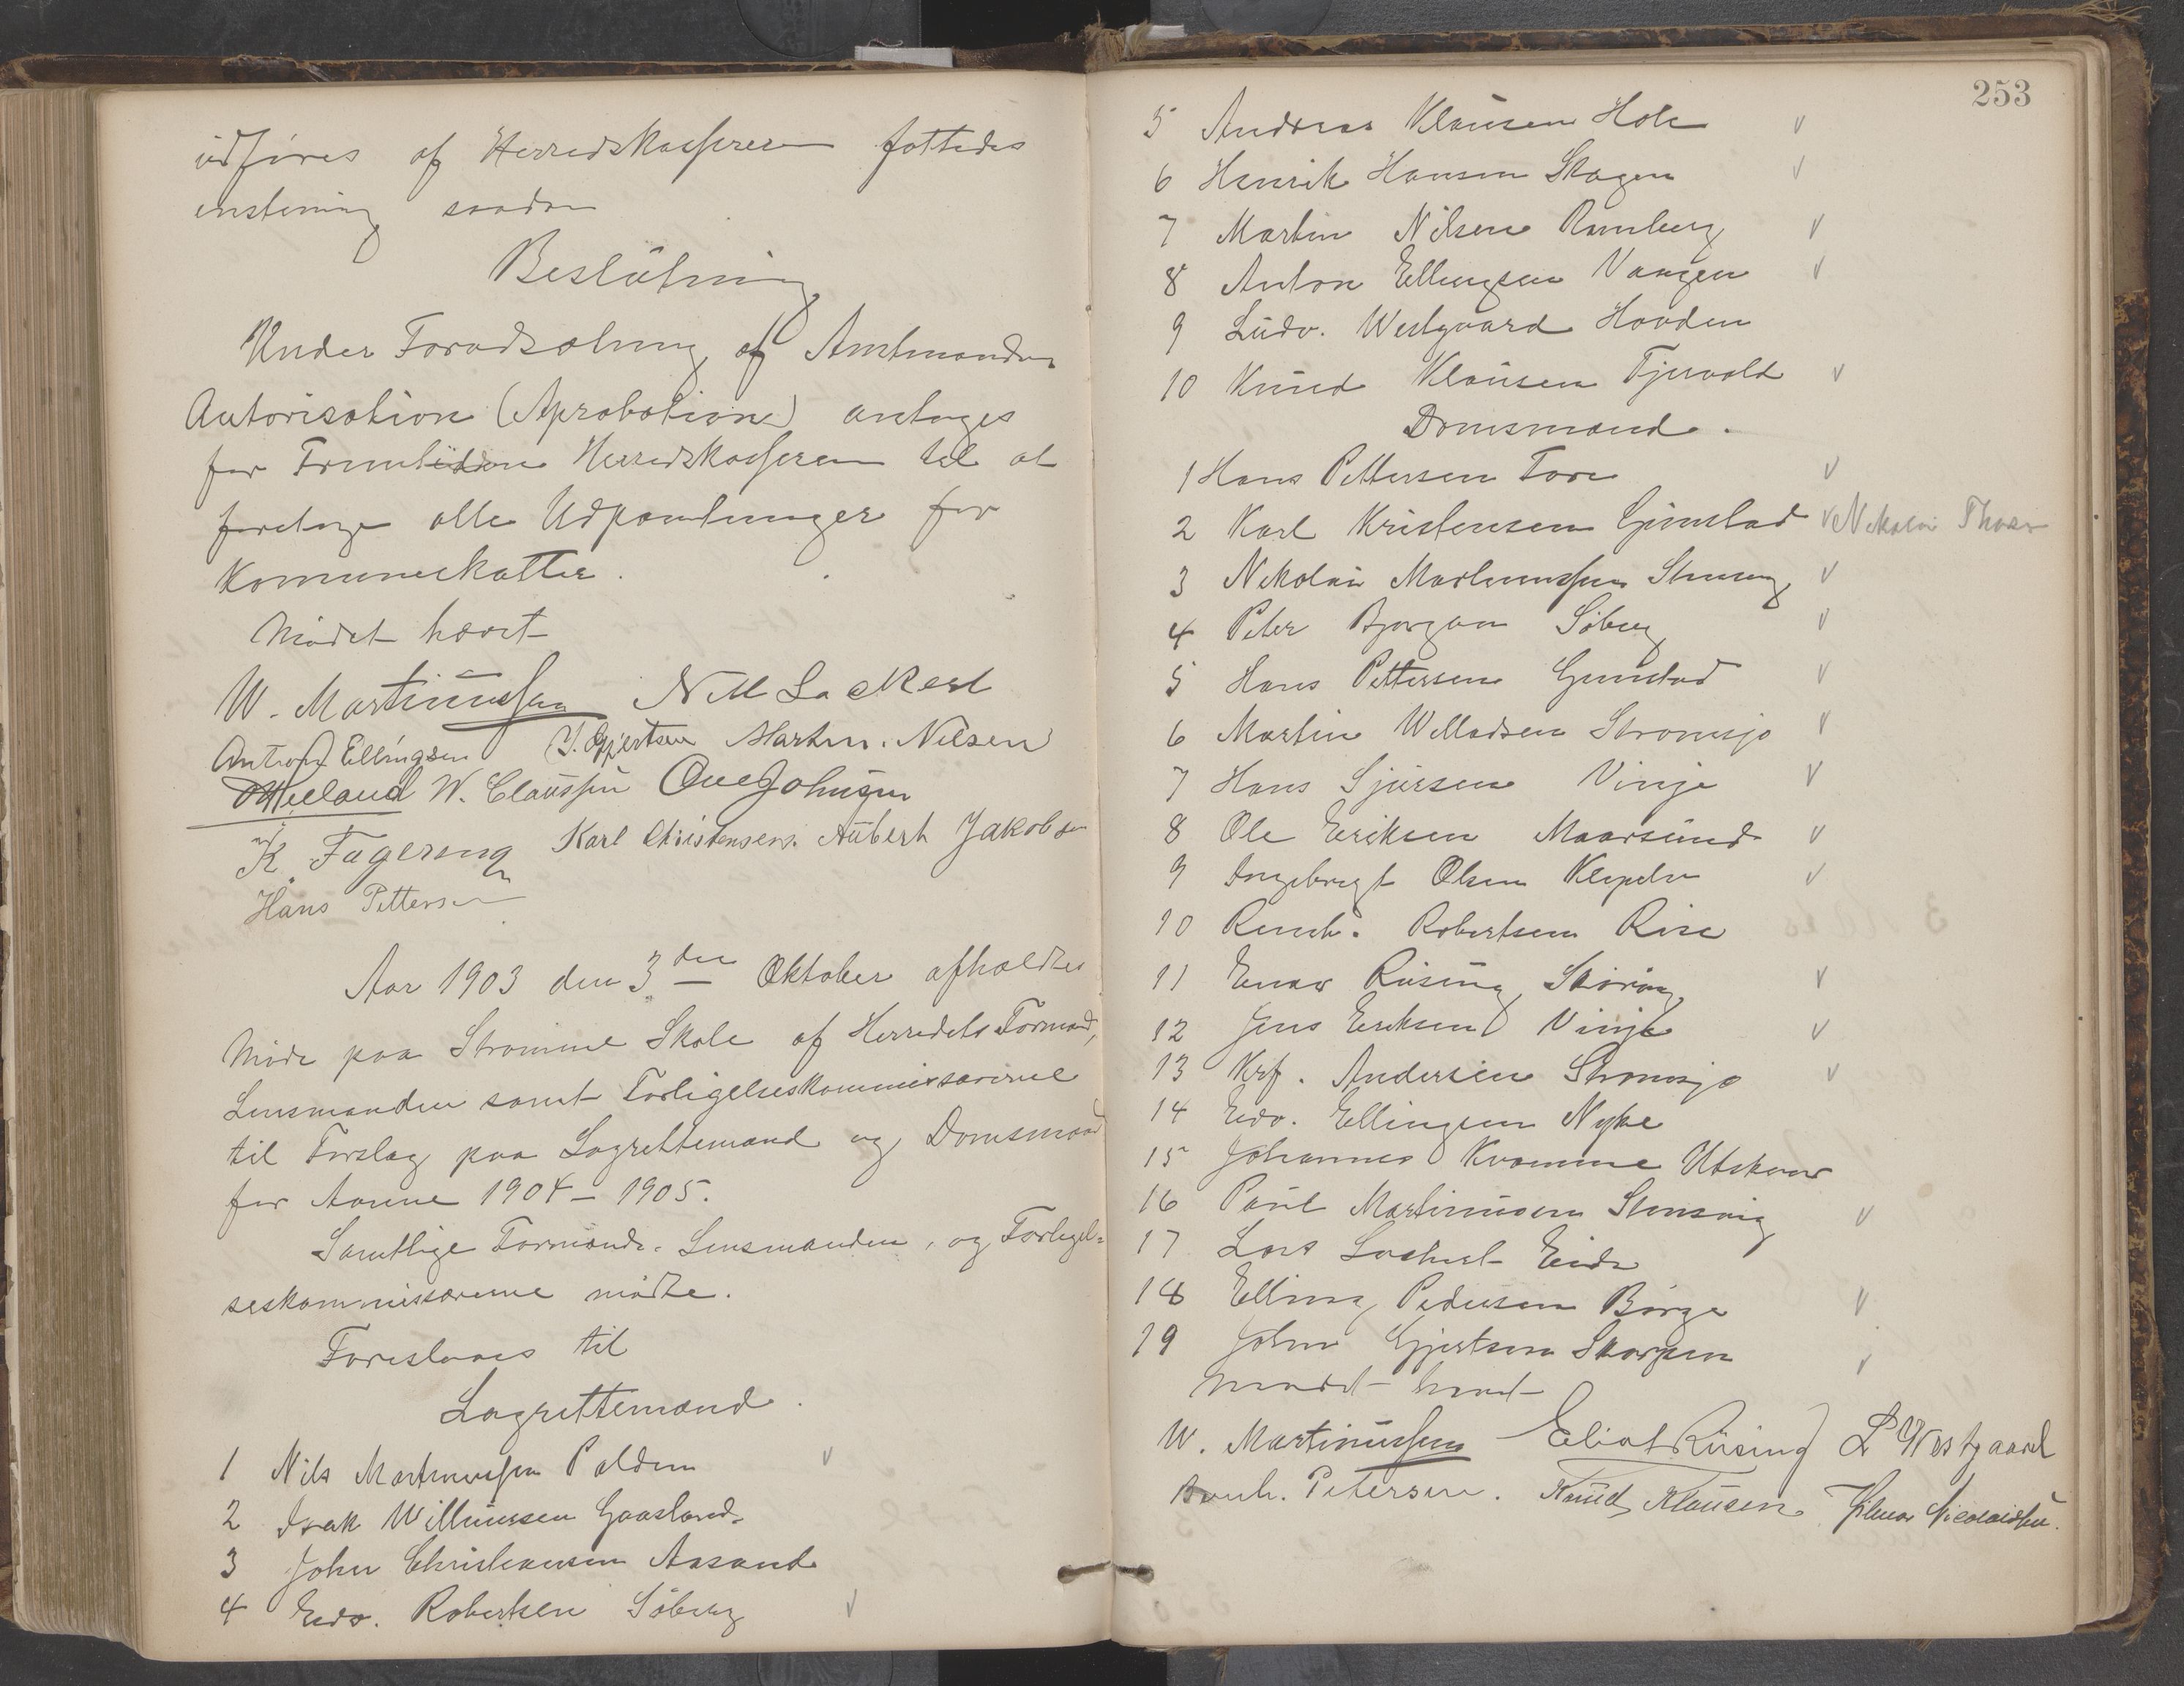 udføres af Herredskasseren fattedes
enstemig saadan
Beslutning
Under Forudsætning af Amtmandens
Autorisation (Aprobation) antages
for Fremtiden Herredskasseren til at
foretage alle Udpantninger for
Kommuneskatter.
Mødet hævet
W. Martinussen N M Lockert
Anton Ellingsen J. Gjertsen Martin. Nilsen
W. Claussen Ove Johnsen
K. Fagereng Karl Christensen. Aubert Jakobsen
Hans Pettersen
Aar 1903 den 3die Oktober afholdtes
Møde paa Strømme Skole af Herredets Formænd,
Lensmanden samt Forligelseskommissærerne
til Forslag paa Lagrettemænd og Domsmænd
for Aarene 1904 – 1905.
Samtlige Formænd. Lensmanden, og Forligel-
seskommissærerne mødte.
Foreslaaes til
Lagrettemænd.
1 Nils Martinussen Polden
2 Isak Willumsen Gaasland
3 John Christiansen Aasand
4 Edv. Robertsen Søberg
253
5 Andreas Klausen Hole
6 Henrik Hansen Skagen
7 Martin Nilsen Ramberg
8 Anton Ellingsen Vangen
9 Ludv. Westgaard Hovden
10 Knud Klausen Tjervold
Domsmænd.
1 Hans Pettersen Fore
2 Karl Kristensen Gimstad Nikolai
3 Nikolai Martinussen
4 Peter Søberg
5 Hans Pettersen Gunstad
6 Martin Willadsen Strømsjø
7 Hans Sjursen Vinje
8 Ole Eriksen Maarsund
9 Ingebrigt Olsen
10 Robertsen Rise
11 Einar Rüsing Skoring
12 Jens Eriksen Vinje
13 Krf. Andersen Strømsjø
14 Edv. Ellingsen Nyke
15 Johannes Kvamme Utskor
16 Paul Martinusen Stensvig
17 Lars Lockert Eide
18 Elling Pedersen Børge
19 John Gjertsen Skorpen
Mødet hævet
W. Martinussen Eliot Rüsing L Westgaard
Petersen. Knud Klausen Hilmar Nicolaisen.